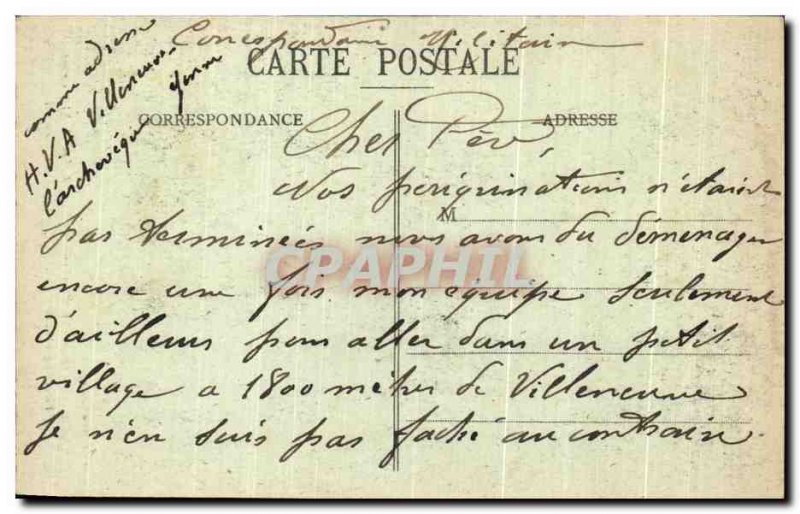 Correspondance Militaire
comme adresse
H.V.A Villeneuve
l'archevêque Yonne
CARTE POSTALE
CORRESPONDANCE
ADRESSE
Cher Père,
Nos périgrinations n'étaient
M
pas terminées nous avons du déménager
CPAPHIL
encore une fois mon équipe seulement
d'ailleurs pour aller dans un petit
village a 1800 mètres de Villeneuve
Je n'en suis pas faché au contraire.